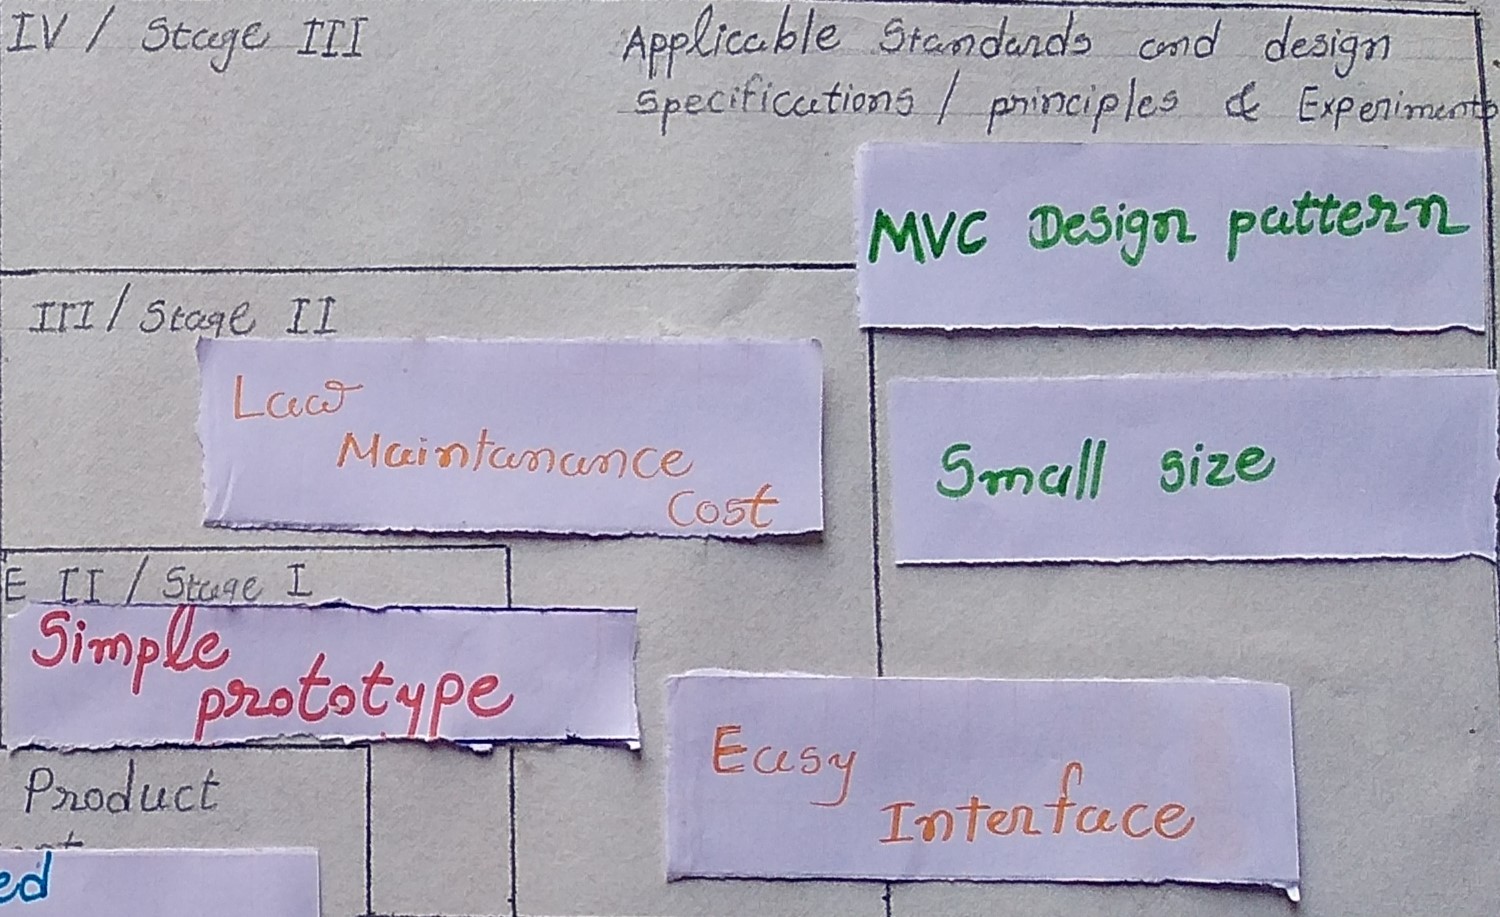 IV / Stage III
Applicable Standards and design
Specifications / principles & Experiments
MVC Design pattern
III / Stage II
Low
Maintanance
Cost
Small size
E II / Stage I
Simple
prototype
Easy
Interface
Product
ed